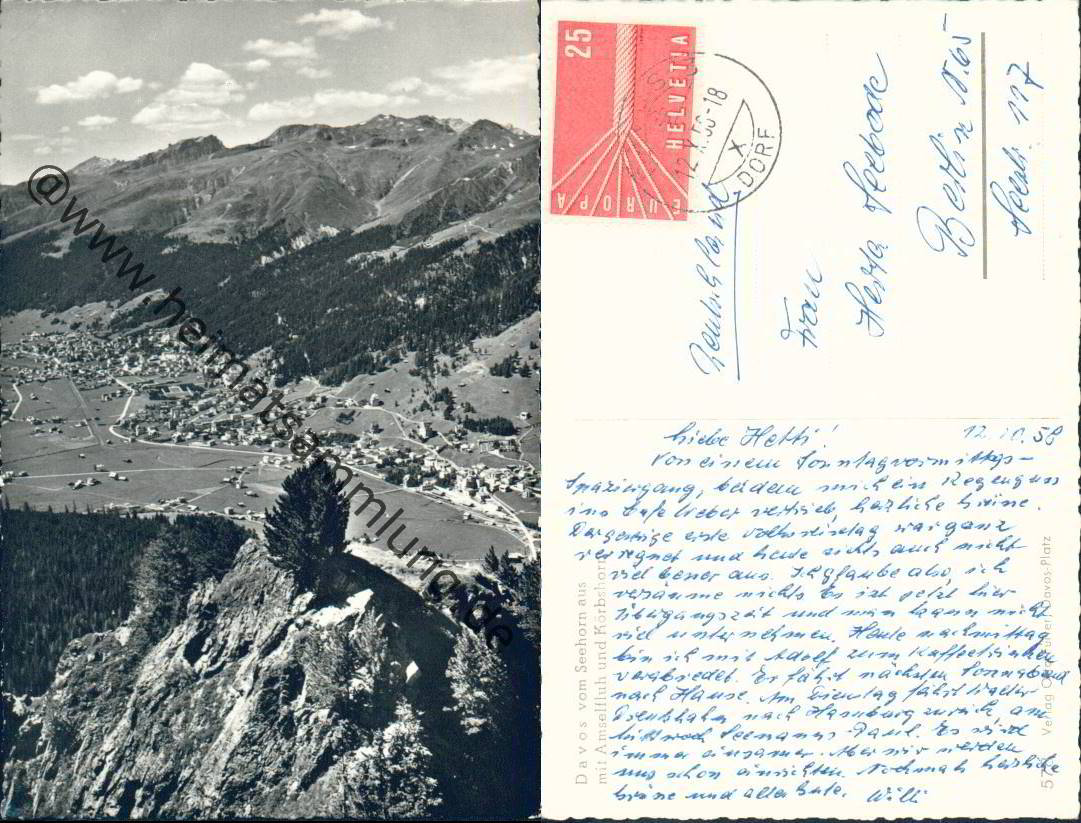 @www.heimatsammlung.de
25
HELVETIA
EUROPA
DORF
X
Deutschland
Frau
Herta Seebode
Berlin N. 65
Seestr. 117
Liebe Hetti! 12.10.58
Von einem Sonntagvormittags-
spaziergang, bei dem mich ein Regenguss
ins Cafe Weber vertrieb, herzliche Grüße.
Der gestrige erste Volksreisetag war ganz
verregnet und heute sieht's auch nicht
viel besser aus. Ich glaube also, ich
versäume nichts. Es ist jetzt hier
Übergangszeit und man kann nicht
viel unternehmen. Heute nachmittag
bin ich mit Adolf zum Kaffeetrinken
verabredet. Er fährt nächsten Sonnabend
nach Hause. Am Dienstag fährt
nach Hamburg zurück, am
Mittwoch Seemanns Es wird
immer einsamer. Aber wir werden
uns schon einrichten. Nochmals herzliche
Grüße und alles Gute. Willi
Davos vom Seehorn aus
mit Amselfluh und Körbshorn
Verlag Davos-Platz